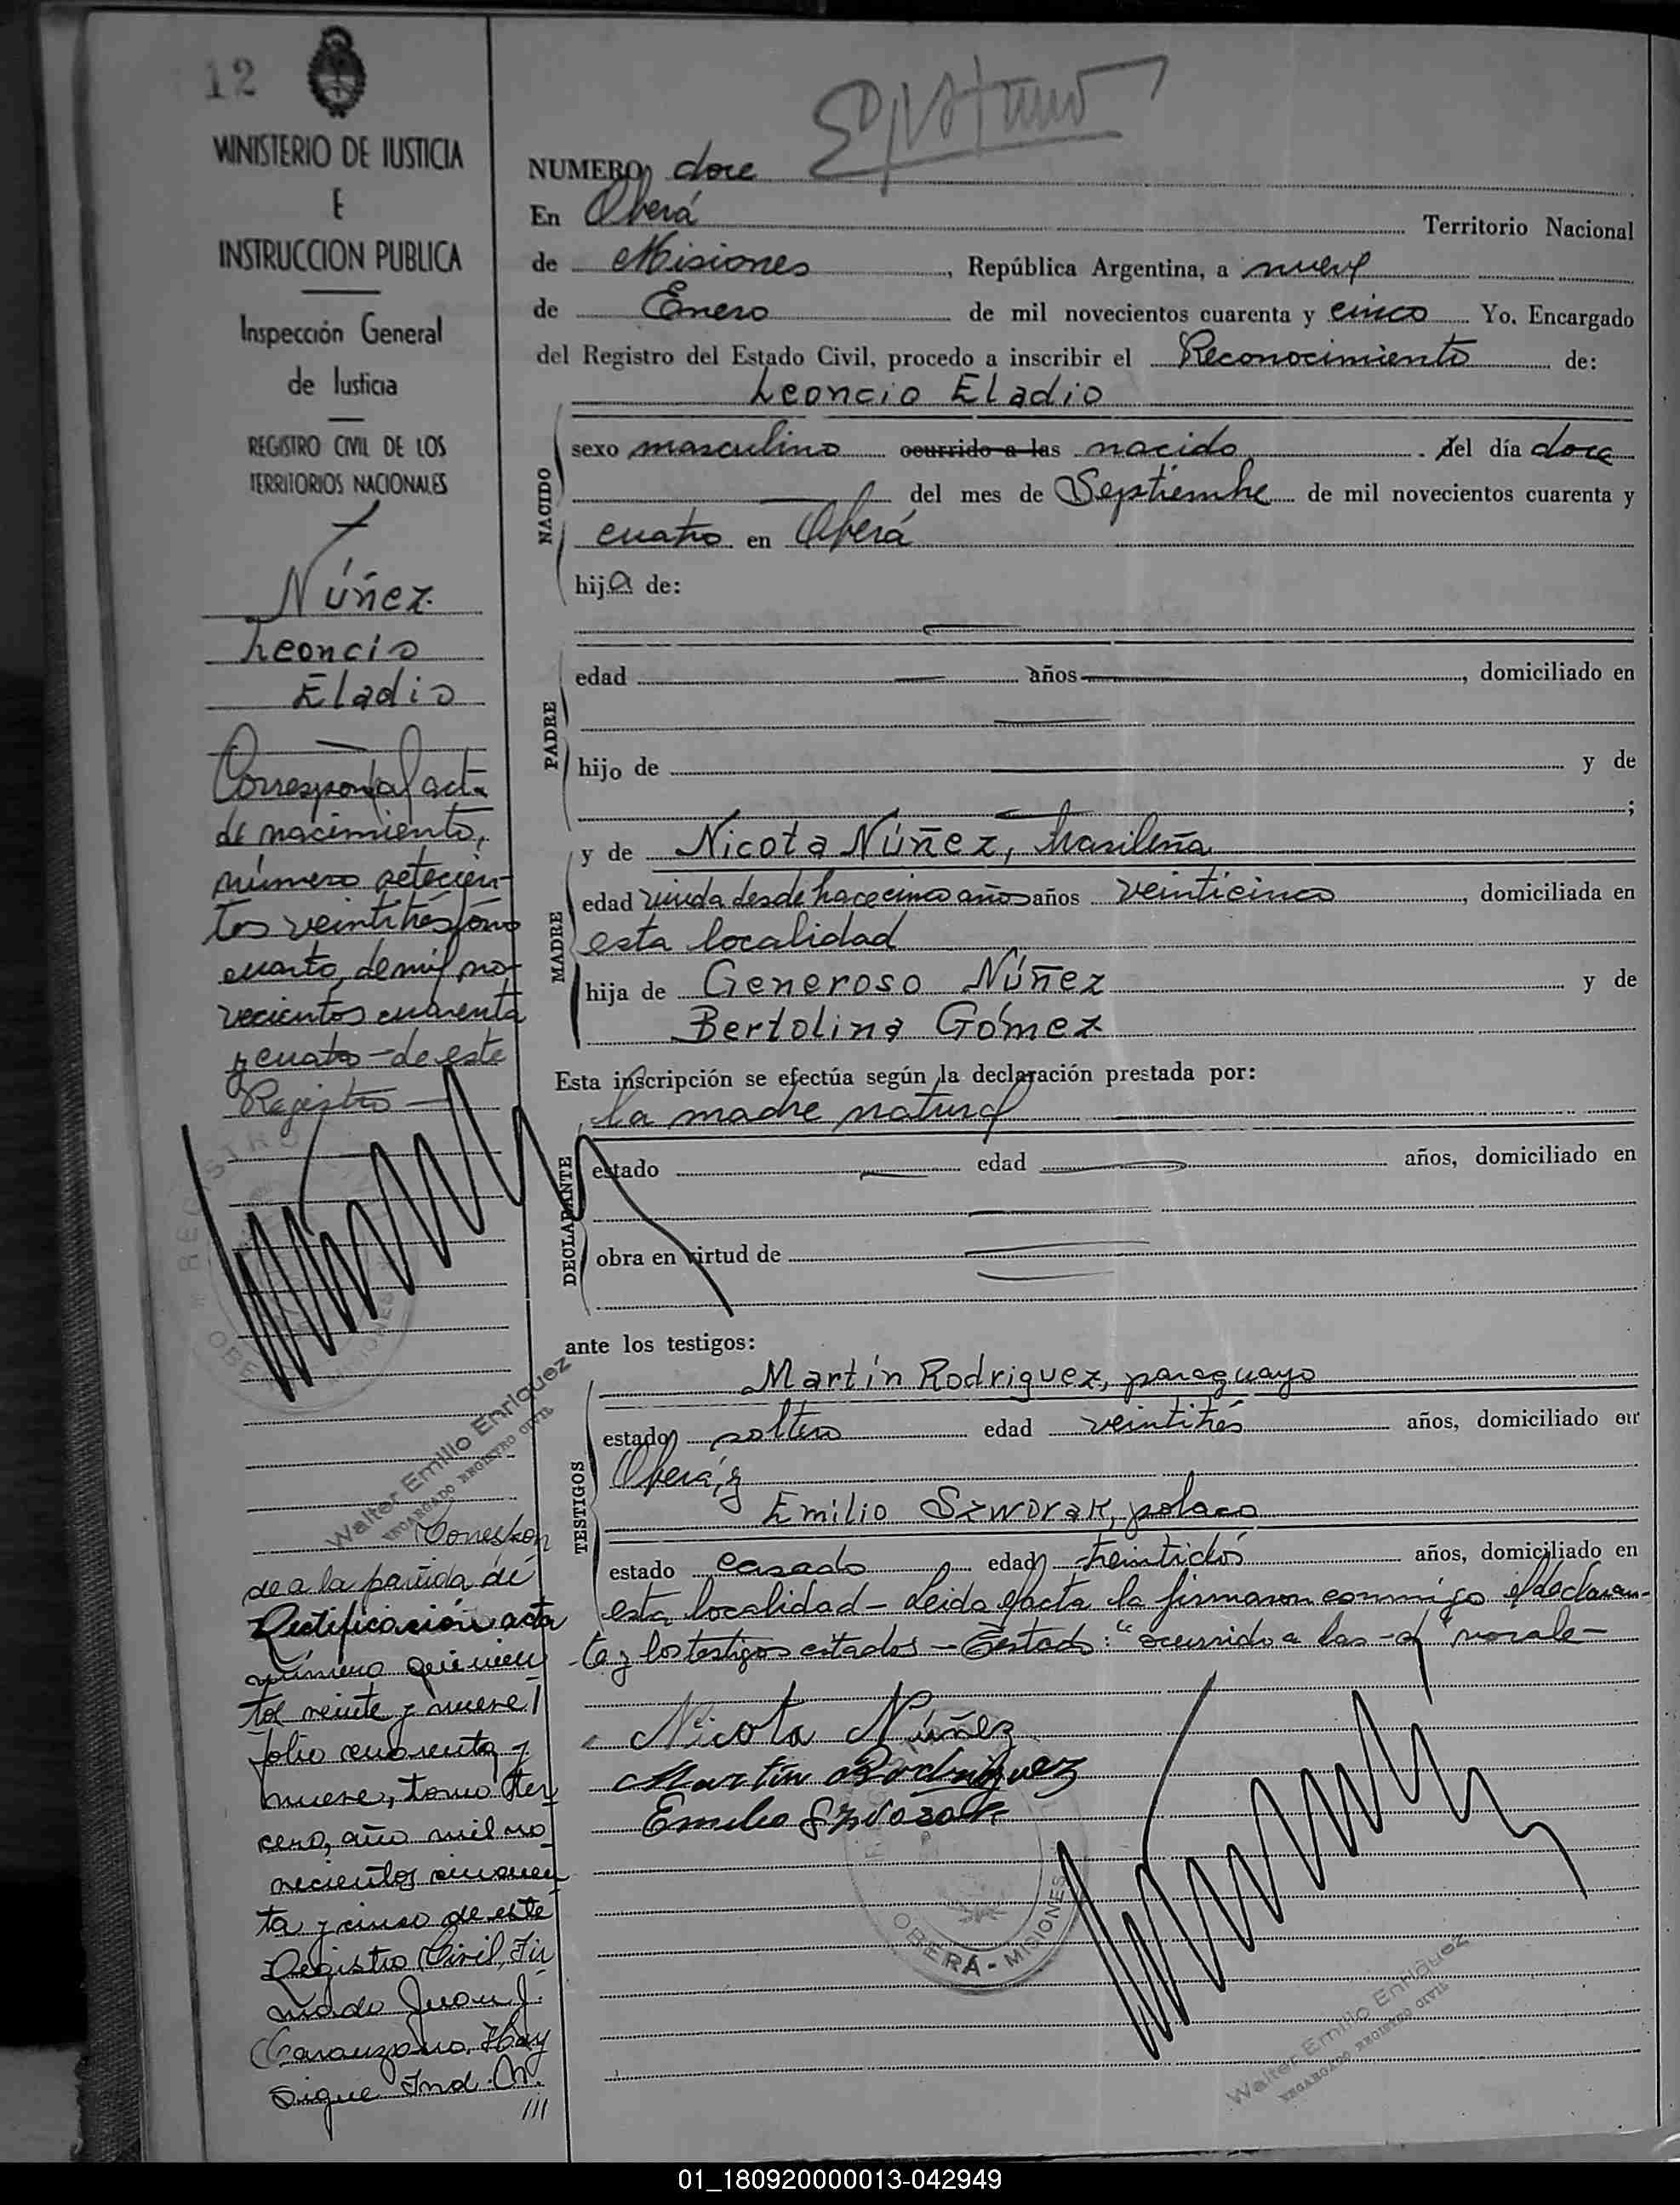 12
MINISTERIO DE JUSTICIA
E
INSTRUCCION PUBLICA
Inspección General
de Justicia
REGISTRO CIVIL DE LOS
TERRITORIOS NACIONALES
Núñez
Leoncio
Eladio
Corresponde al acta
de nacimiento,
número setecien-
tos veintitrés, tomo
cuarto, de mil no-
vecientos cuarenta
y cuatro - de este
Registro -
Walter Emilio Enriquez
ENCARGADO REGISTRO CIVIL
Correspon
de a la partida de
Rectificación acta
número quinien
tos veinte y nueve,
folio cuarenta y
nueve, tomo Ter
cero, año mil no
vecientos cincuen
ta y cinco de este
Registro Civil, Fir
mado Juan J.
Hay
Sigue
NUMERO doce
En Oberá Territorio Nacional
de Misiones, República Argentina, a nueve
de Enero de mil novecientos cuarenta y cinco Yo, Encargado
del Registro del Estado Civil, procedo a inscribir el Reconocimiento de:
Leoncio Eladio
NACIDO
sexo masculino ocurrido a las nacido. del día doce
del mes de Septiembre de mil novecientos cuarenta y
cuatro en Oberá
hijo de:
PADRE
edad años , domiciliado en
hijo de y de
;
MADRE
y de Nicota Núñez, brasileña
edad viuda desde hace cinco años años veinticinco, domiciliada en
esta localidad
hija de Generoso Núñez y de
Bertolina Gómez
Esta inscripción se efectúa según la declaración prestada por:
la madre natural
DECLARANTE
estado edad años, domiciliado en
obra en virtud de
ante los testigos:
TESTIGOS
Martín Rodriguez, paraguayo
estado soltero edad veintitrés años, domiciliado en
Oberá, y
Emilio Szworak, polaco
estado casado edad treintidós años, domiciliado en
esta localidad - Leída el acta la firmaron conmigo el declaran-
te y los testigos citados - Testado: "ocurrido a las - d" no vale -
Nicota Núñez
Martin Rodriguez
Emilio
OBERÁ - MISIONES
Walter Emilio Enriquez
ENCARGADO REGISTRO CIVIL
01_180920000013-042949